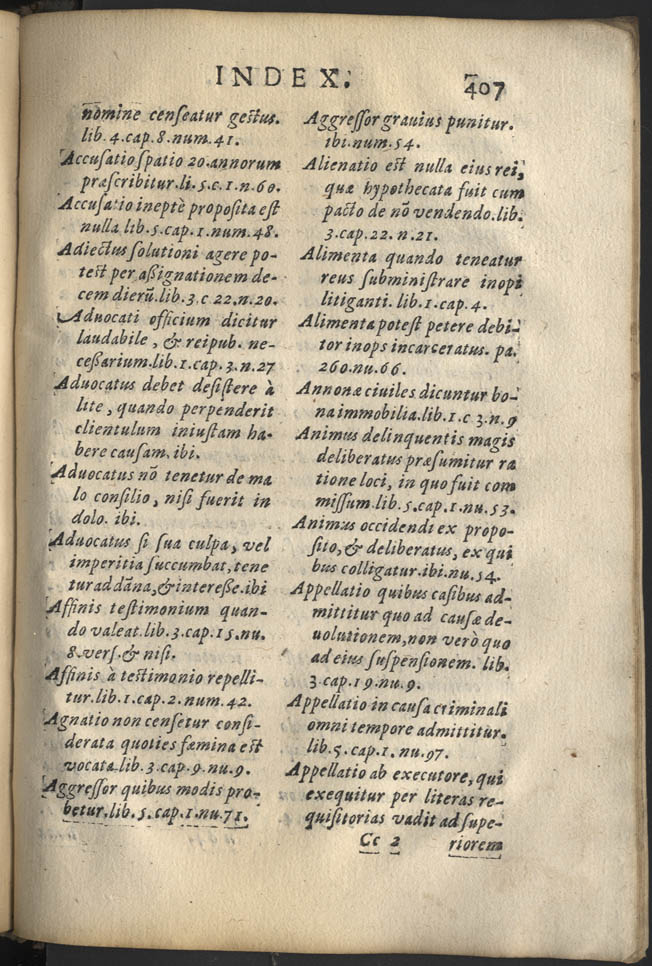 INDEX.
407
nomine censeatur gestus.
lib. 4. cap. 8. num. 41.
Accusatio spatio 20. annorum
præscribitur. li. 5. c. 1. n. 60.
Accusatio ineptè proposita est
nulla. lib. 5. cap. 1. num. 48.
Adiectus solutioni agere po-
test per aßignationem de-
cem dierũ. lib. 3. c 22. n. 20.
Aduocati officium dicitur
laudabile, & reipub. ne-
ceßarium. lib. 1. cap. 3. n. 27
Aduocatus debet desistere à
lite, quando perpenderit
clientulum iniustam ha-
bere causam. ibi.
Aduocatus nõ tenetur de ma
lo consilio, nisi fuerit in
dolo. ibi.
Aduocatus si sua culpa, vel
imperitia succumbat, tene
tur ad dãna, & intereße. ibi
Affinis testimonium quan-
do valeat. lib. 3. cap. 15. nu.
8. vers. & nisi.
Affinis à testimonio repelli-
tur. lib. 1. cap. 2. num. 42.
Agnatio non censetur consi-
derata quoties fæmina est
vocata. lib. 3. cap. 9. nu. 9.
Aggressor quibus modis pro-
betur. lib. 5. cap. 1. nu. 71.
Aggressor grauius punitur.
ibi. num. 54.
Alienatio est nulla eius rei,
quæ hypothecata fuit cum
pacto de nõ vendendo. lib.
3. cap. 22. n. 21.
Alimenta quando teneatur
reus subministrare inopi
litiganti. lib. 1. cap. 4.
Alimenta potest petere debi-
tor inops incarceratus. pa.
260. nu. 66.
Annonæ ciuiles dicuntur bo-
na immobilia. lib. 1. c 3. n. 9
Animus delinquentis magis
deliberatus præsumitur ra
tione loci, in quo fuit com
missum. lib. 5. cap. 1. nu. 53.
Animus occidendi ex propo-
sito, & deliberatus, ex qui
bus colligatur. ibi. nu. 54.
Appellatio quibus casibus ad-
mittitur quo ad causæ de-
uolutionem, non verò quo
ad eius suspensionem. lib.
3. cap. 19. nu. 9.
Appellatio in causa criminali
omni tempore admittitur.
lib. 5. cap. 1. nu. 97.
Appellatio ab executore, qui
exequitur per literas re-
quisitorias vadit ad supe-
Cc 2 riorem